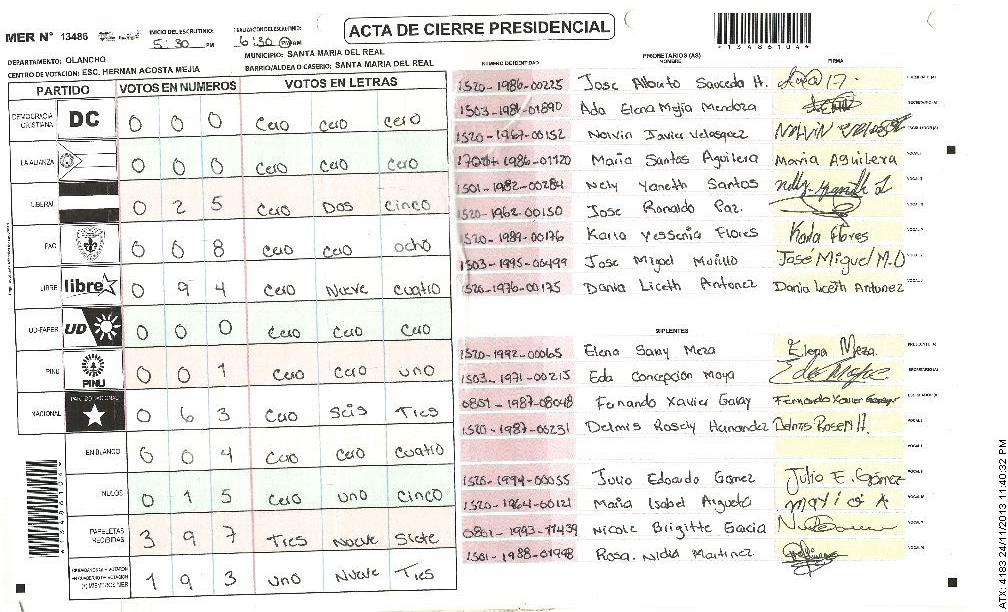 ACTA DE CIERRE PRESIDENCIAL
MER N° 13486
INICIO DEL ESCRUTINIO: 5:30 PM
6:30 PM AM
*13486104*
DEPARTAMENTO: OLANCHO
MUNICIPIO: SANTA MARIA DEL REAL
CENTRO DE VOTACION: ESC. HERNAN ACOSTA MEJIA
BARRIO/ALDEA O CASERIO: SANTA MARIA DEL REAL
PARTIDO VOTOS EN NUMEROS VOTOS EN LETRAS
DEMOCRACIA CRISTIANA DC 0 0 0 Cero cero cero
LA ALIANZA 0 0 0 Cero Cero Cero
LIBERAL 0 2 5 Cero Dos cinco
PAC 0 0 8 Cero cero ocho
LIBRE libre 0 9 4 Cero Nueve cuatro
UD-FAPER UD 0 0 0 Cero Cero Cero
PINU PINU 0 0 1 Cero cero uno
NACIONAL PARTIDO NACIONAL 0 6 3 Cero Seis Tres
EN BLANCO 0 0 4 Cero Cero cuatro
NULOS 0 1 5 Cero uno cinco
PAPELETAS RECIBIDAS 3 9 7 Tres Nueve Siete
1 9 3 uno Nueve Tres
NUMERO DE IDENTIDAD PROPIETARIOS (AS) NOMBRE FIRMA
1520-1986-00225 Jose Alberto Sauceda H.
1503-1981-01890 Ada Elena Mejia Mendoza
1520-1967-00152 Norvin Javier Velasquez
1986-01120 Maria Santos Aguilera Maria Aguilera
1501-1982-00284 Nely Yaneth Santos
1520-1962-00150 Jose Ronaldo Paz.
1520-1989-00176 Karla Yessenia Flores Karla Flores
1503-1995-00499 Jose Migel Murillo José Miguel M.O
1520-1976-00175 Dania Liceth Antonez Dania Liceth Antunez
SUPLENTES
1520-1992-00065 Elena Sany Meza Elena Meza.
1503-1971-00213 Eda Concepción Moya
0801-1987-08048 Fernando Xavier Garay Fernando Xavier Garay
1520-1987-00231 Delmis Rosely Hernandez Delmis Rosely H.
1520-1994-00055 Julio Edoardo Gomez Julio E. Gómez
1520-1964-00121 Maria Isabel Argueta
0801-1993-11439 Nicole Brigitte Garcia
1501-1988-01998 Rosa. Nidia Martinez
ATX: 4183 24/11/2013 11:40:32 PM